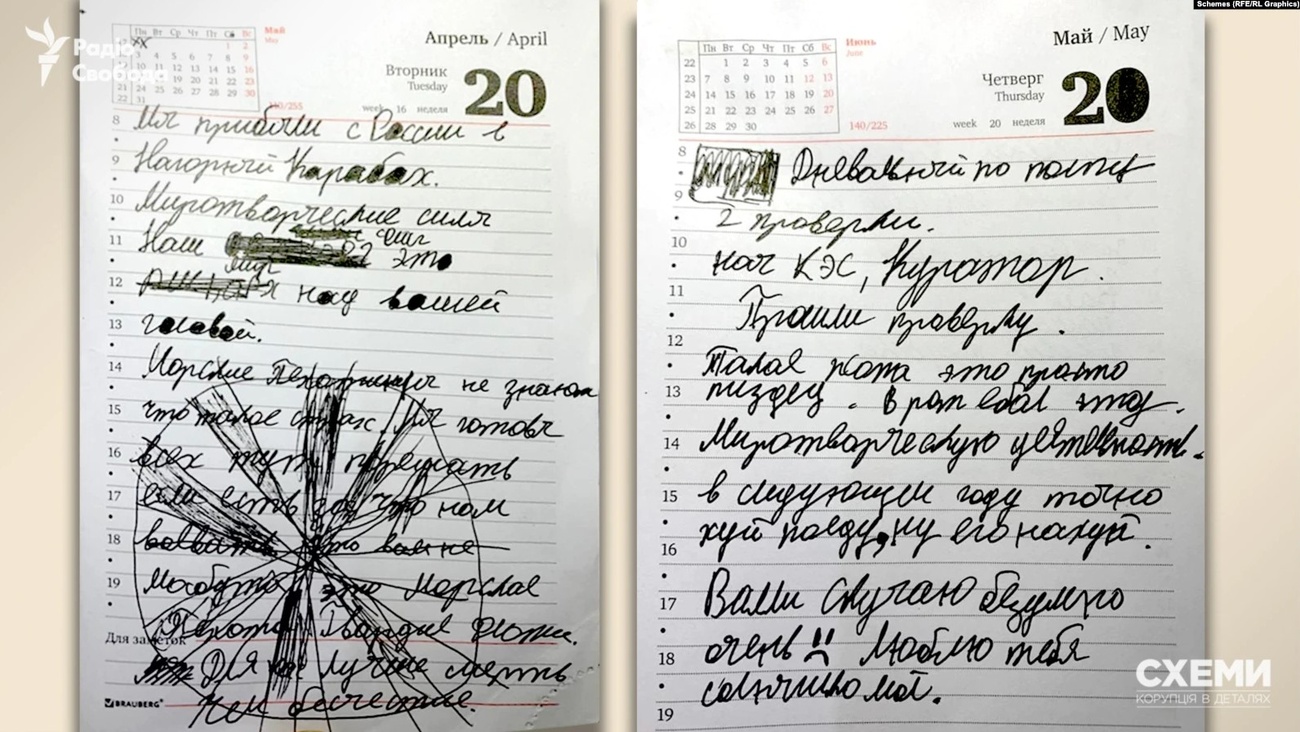 Schemes (RFE/RL Graphics)
Радіо
Свобода
Пн Вт Ср Чт Пт Сб Вс
Май
May
1 2
4 5 6 7 8 9
10 11 12 13 14 15 16
19 20 21 22 23
22 31
110/255
Апрель / April
Вторник
Tuesday
20
week 16 неделя
8 Мы прибыли с России в
9 Нагорный Карабах.
10 Миротворческие силы
11 Наш это
12 над вашей
13 головой.
14 Морские Пехотинцы не знают
15 что такое страх. Мы готовы
16 всех тут порешать
17 если есть за что нам
18 воевать это вам не
19 Мосбутор это Морская
Для заметок
Пехота. Гвардия
Для нас лучше смерть
чем бесчестие.
BRAUBERG
Май / May
Четверг
Thursday
20
week 20 неделя
Пн Вт Ср Чт Пт Сб Вс
Июнь
June
22 1 2 3 4 5 6
23 7 8 9 10 11 12 13
24 14 15 16 17 18 19 20
25 21 22 23 24 25 26 27
26 28 29 30
140/225
8 Дневальный по посту
9
2 проверки.
10 нач КЭС, Куратор.
11
Прошли проверку.
12
Такая жопа это просто
13 пиздец. В рот ебал эту.
14 Миротворческую деятельность.
15 в следующем году точно
16 хуй поеду, ну его нахуй.
17 Вами скучаю безумно
18 очень Люблю тебя
солнышко мой.
19
СХЕМИ
КОРУПЦІЯ В ДЕТАЛЯХ